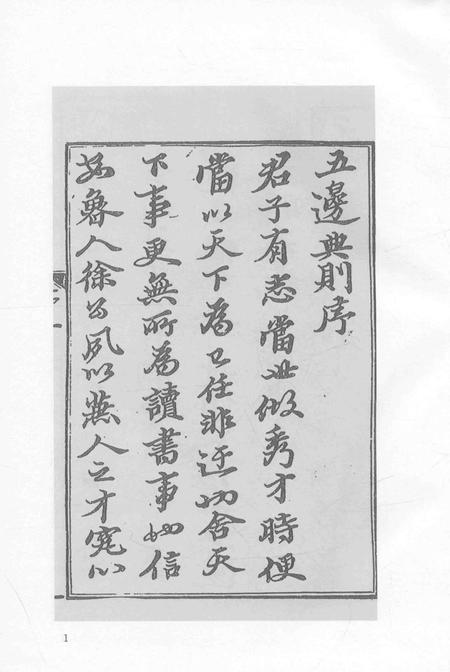 五邊典則序
君子有志當世做秀才時便
當以天下為己任非迂也舍天
下事更無所為讀書事也信
魯人徐公夙以兼人之才究心
1